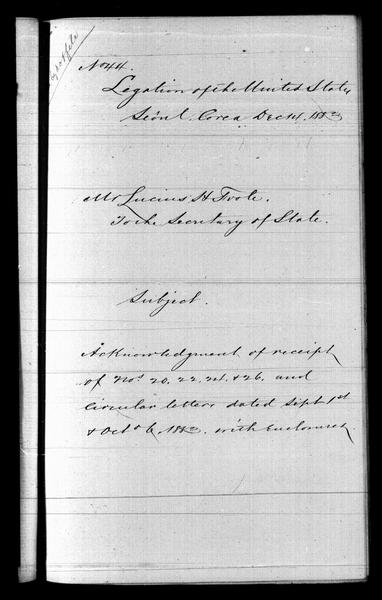 No 44.
Legation of the United States
Séoul. Corea Dec 14, 1883
Mr Lucius H Foote.
To the Secretary of State.
Subject.
Acknowledgment of receipt
of Nos 20, 22, 24, & 26, and
Circular letters dated Sept 1st
& Oct 6, 1883. with Enclosures.